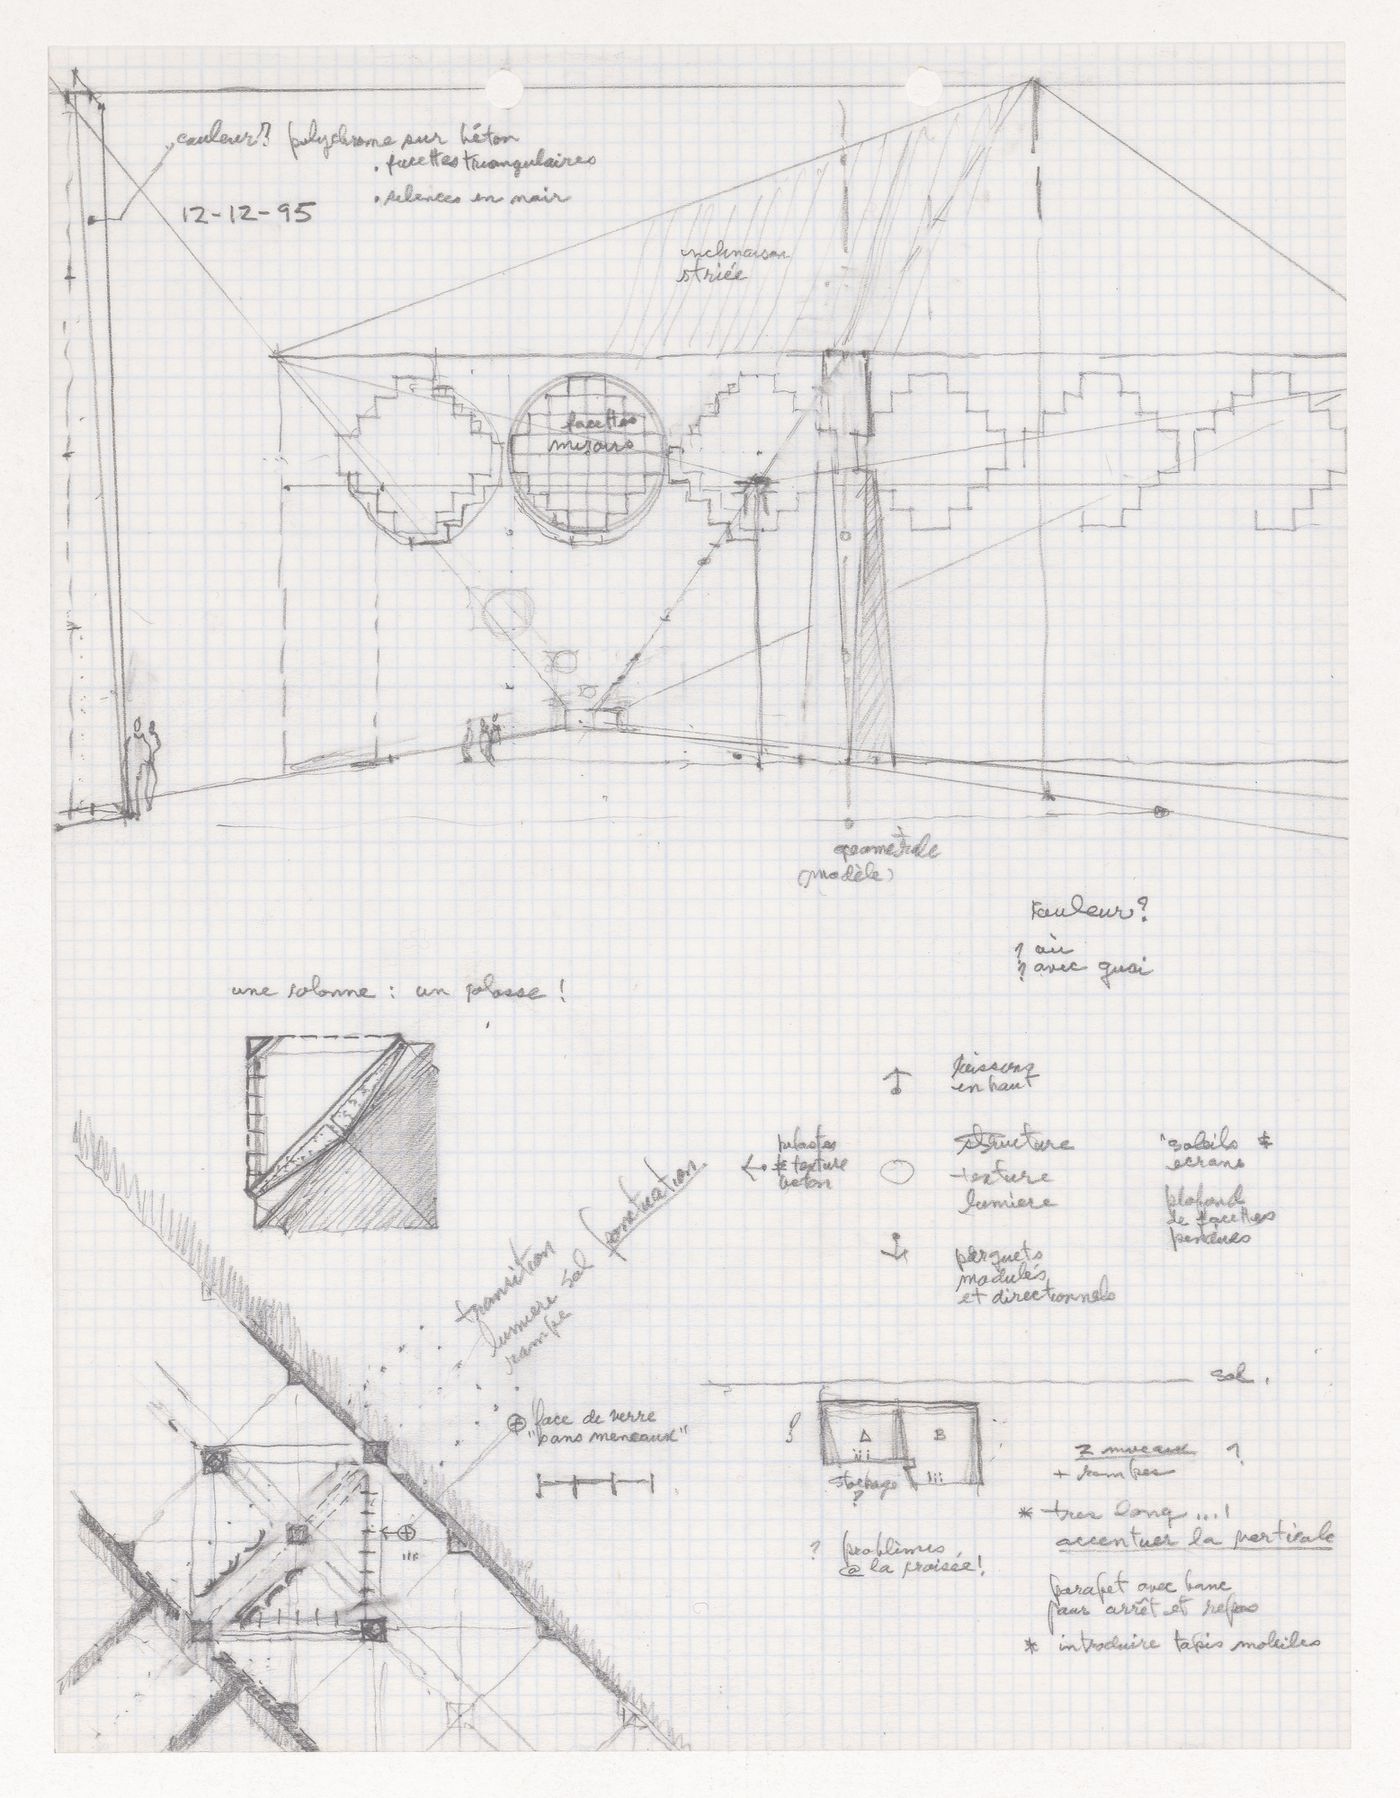 couleur? polychrome sur béton
• facettes triangulaires
• silences en noir
12-12-95
inclinaison
striée
facettes
miroirs
géométrale
(modèle)
couleur?
? où
? avec quoi
une colonne : un colosse !
laissons
en haut
pilastes
& texture
béton
structure
texture
lumiere
soleils &
ecrans
plafond
de facettes
pendues
parquets
modulés,
et directionnels
transition
lumiere sol ponctuation
rampe
face de verre
"sans meneaux"
sol.
A
B
stockage
?
2 niveaux ?
+ rampes
* tres long ...!
accentuer la verticale
? problèmes
@ la croisée!
parapet avec banc
pour arrêt et repos
* introduire tapis mobiles